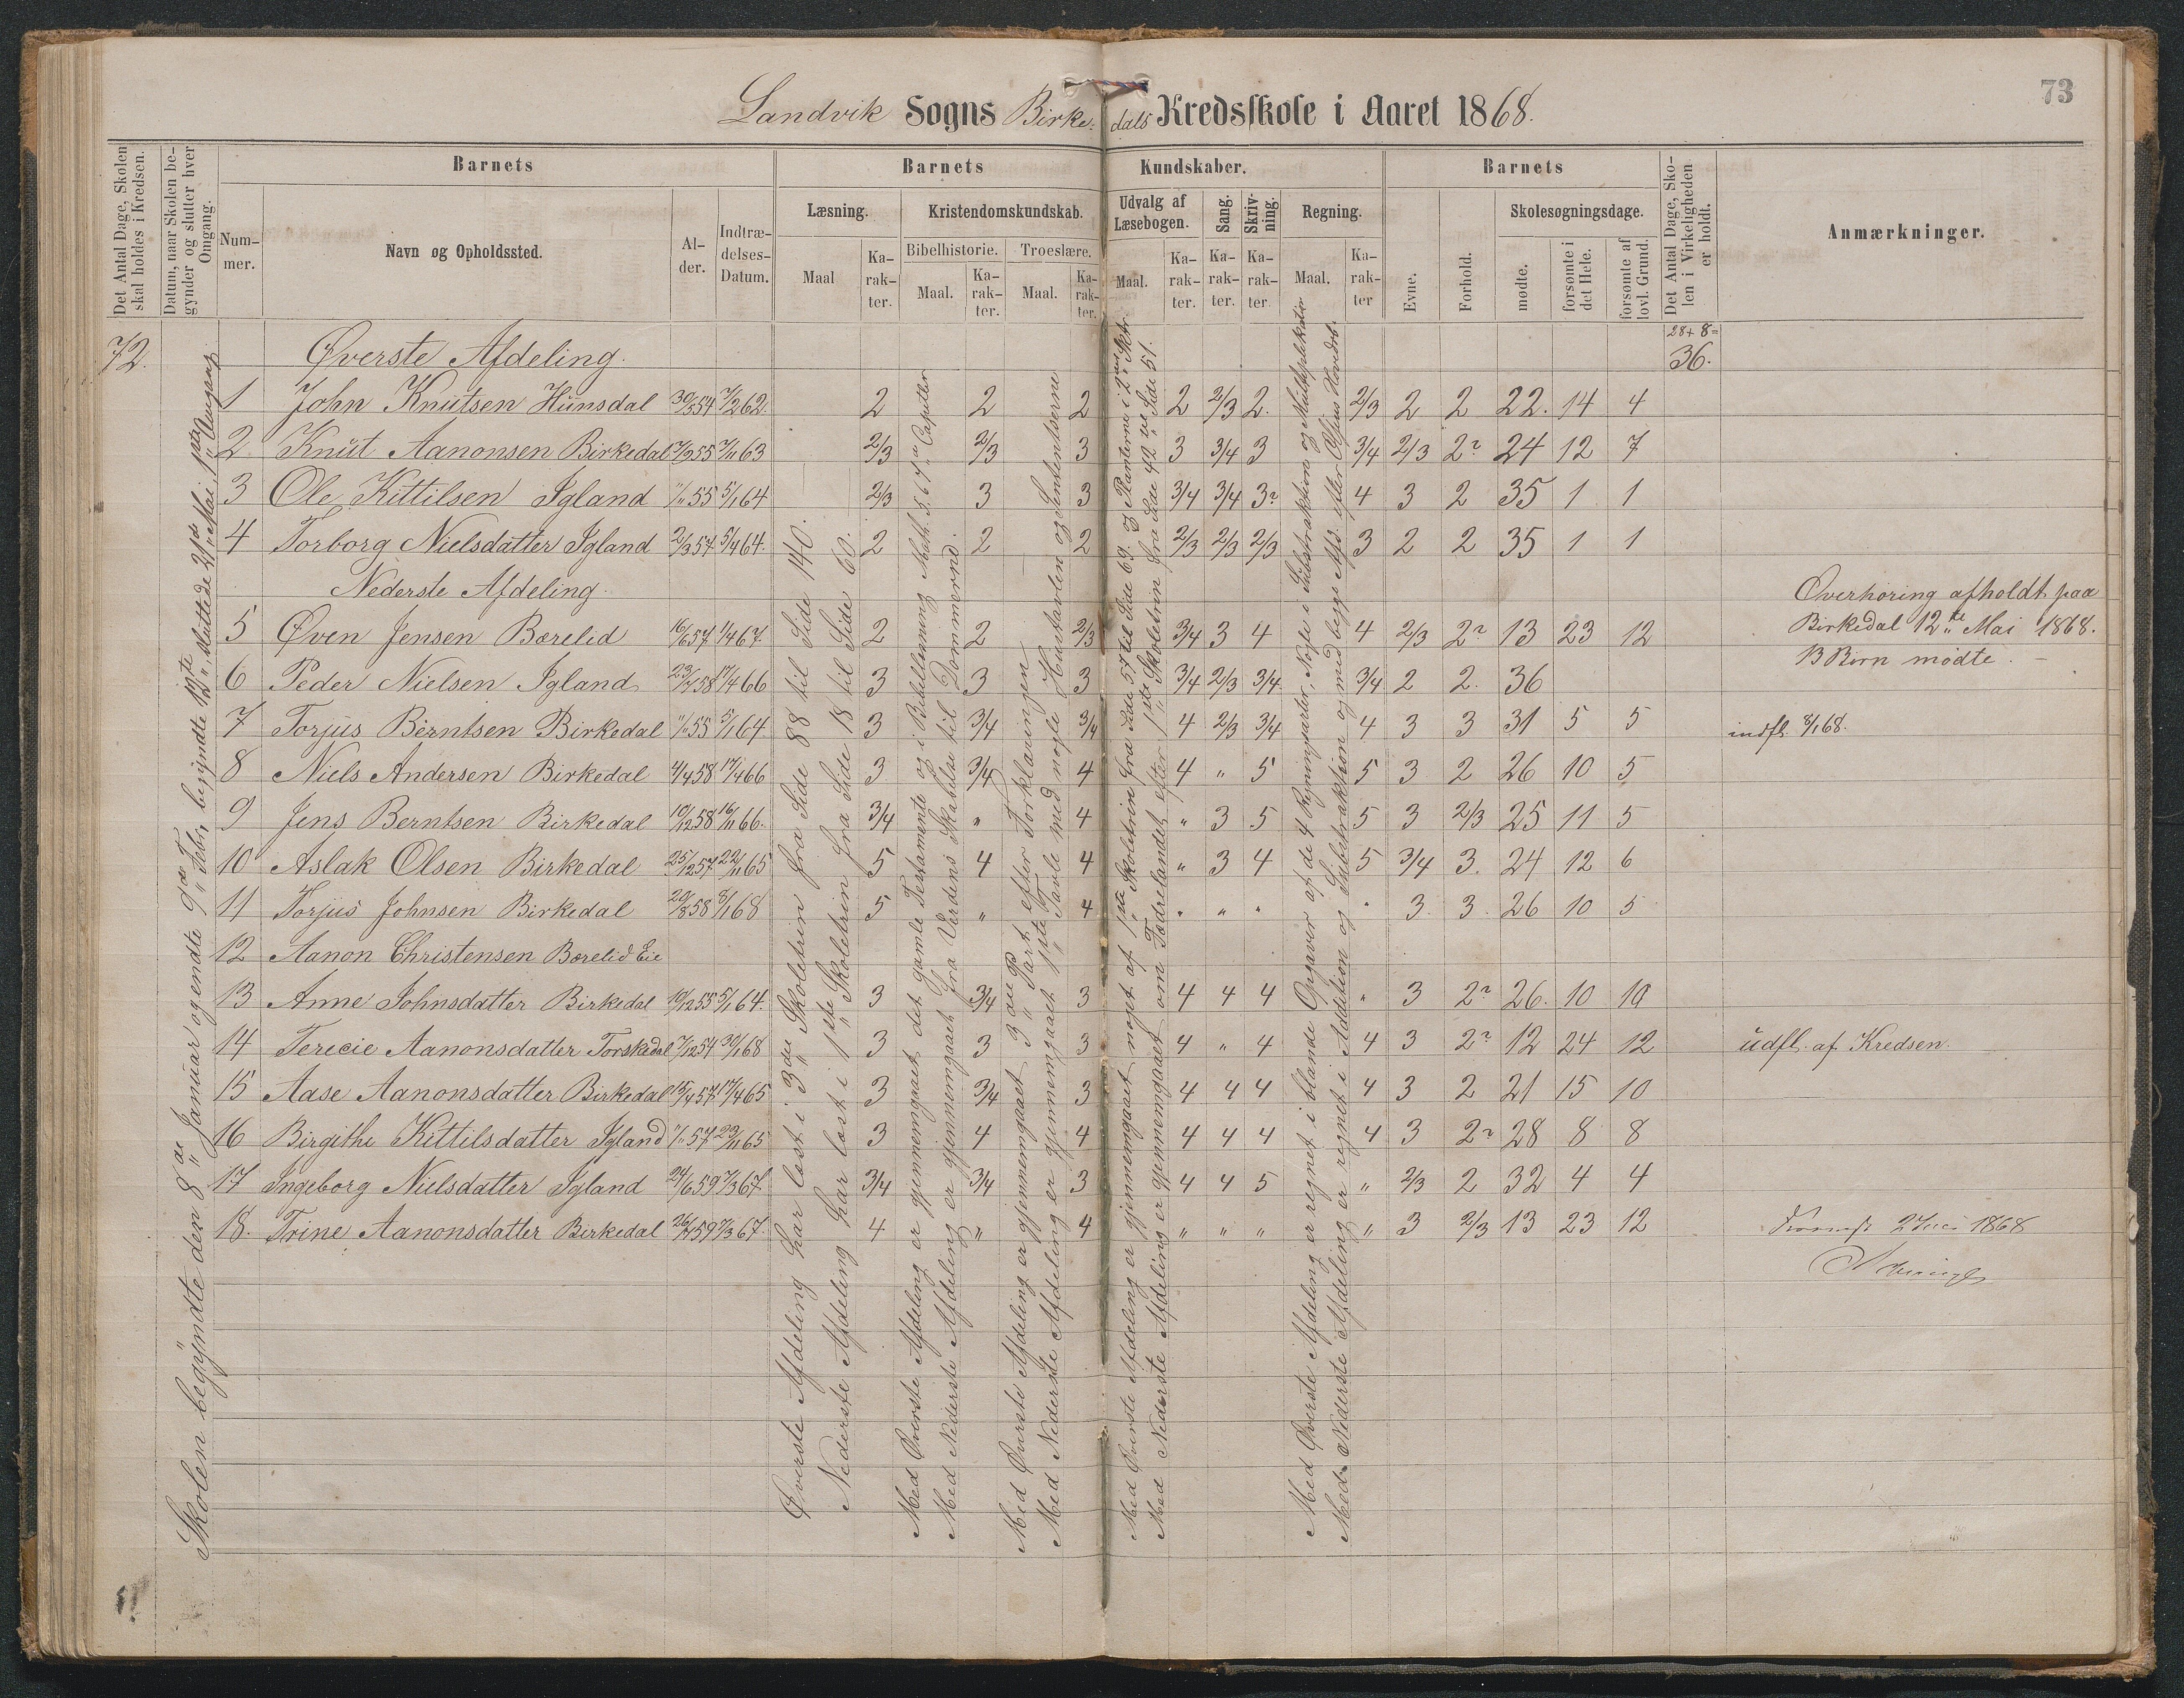 73
Landvik Sogns Birke- dals Kredsskole i Aaret 1868.
Det Antal Dage, Skolen skal holdes i Kredsen.
Datum, naar Skolen begynder og slutter hver Omgang.
Barnets
Nummer.
Navn og Opholdssted.
Alder.
Indtrædelses-Datum.
Barnets Kundskaber.
Læsning.
Maal
Karakter.
Kristendomskundskab.
Bibelhistorie.
Maal.
Karakter.
Troeslære.
Maal.
Karakter.
Udvalg af Læsebogen.
Maal.
Karakter.
Sang.
Karakter.
Skrivning.
Karakter.
Regning.
Maal.
Karakter
Barnets
Evne.
Forhold.
Skolesøgningsdage.
mødte.
forsømte i det Hele.
forsømte af lovl. Grund.
Det Antal Dage, Skolen i Virkeligheden er holdt.
Anmærkninger.
72. Øverste Afdeling. 28+8= 36.
1 John Knutsen Hunsdal 30/5 54 7/2 62. 2 2 2 2 2/3 2. 2/3 2 2 22. 14 4
2 Knut Aanonsen Birkedal 17/9 55 7/11 63 2/3 2/3 3 3 3/4 3 3/4 2/3 2? 24 12 7
3 Ole Kittilsen Igland "/" 55 5/1 64 2/3 3 3 3/4 3/4 3? 4 3 2 35 1 1
4 Torborg Nielsdatter Igland 2/3 57 5/4 64. 2 2 2 2/3 2/3 2/3 3 2 2 35 1 1
Nederste Afdeling.
5 Øven Jensen Bærelid 16/6 57 1/4 67. 2 2 2/3 3/4 3 4 4 2/3 2? 13 23 12
Overhøring afholdt paa
Birkedal 12te Mai 1868.
13 Børn mødte. –
6 Peder Nielsen Igland 23/7 58 17/4 66 3 3 3 3/4 2/3 3/4 3/4 2 2. 36
7 Torjus Berntsen Birkedal "/" 55 5/1 64. 3 3/4 3/4 4 2/3 3/4 4 3 3 31 5 5 indfl. 8/1 68.
8 Niels Andersen Birkedal 4/4 58 17/4 66 3 3/4 4 4 " 5 5 3 2 26 10 5
9 Jens Berntsen Birkedal 10/12 58 16/11 66. 3/4 " 4 " 3 5 5 3 2/3 25 11 5
10 Aslak Olsen Birkedal 25/12 57 22/11 65 5 4 4 " 3 4 5 3/4 3. 24 12 6
11 Torjus Johnsen Birkedal 20/8 58 8/1 68 5 " 4 " " " " 3 3. 26 10 5
12 Aanon Christensen Bærelid Eie
13 Anne Johnsdatter Birkedal 10/12 55 5/1 64. 3 3/4 3 4 4 4 " 3 2? 26. 10 10
14 Terecie Aanonsdatter Torskedal 7/12 57 30/1 68 3 3 3 4 " 4 4 3 2? 12 24 12 udfl. af Kredsen.
15 Aase Aanonsdatter Birkedal 15/4 57 17/4 65 3 3/4 3 4 4 4 4 3 2 21 15 10
16 Birgithe Kittilsdatter Igland "/" 57 29/11 65 3 4 4 4 4 4 4 3 2? 28 8 8
17 Ingeborg Nielsdatter Igland 24/6 59 7/3 67. 3/4 3/4 3 4 4 5 " 2/3 2 32 4 4
18. Trine Aanonsdatter Birkedal 26/7 59 7/3 67. 4 " 4 " " " " 3 2/3 13 23 12
1868
Skolen begyndte den 8de Januar og endte 9de Febr, begyndte 12te, sluttede 21de Mai, 1ste Omgang.
Øverste Afdeling har læst i 3die Skoletrin fra Side 88 til Side 140.
Nederste Afdeling har læst i 1ste Skoletrin fra Side 18 til Side 60.
Med Øverste Afdeling er gjennemgaaet det gamle Testamente og i Bibellæsning Math. 5. 6. 7de Capitler
Med Nederste Afdeling er gjennemgaaet fra Verdens Skabelse til Dommerne.
Med Øverste Afdeling er gjennemgaaet 3die Part efter Forklaringen
Med Nederste Afdeling er gjennemgaaet 1ste Tavle med nogle Hustavlen og Sententserne
Med Øverste Afdeling er gjennemgaaet noget af 1ste Skoletrin fra Side 57 til Side 69. og Planterne i 2det Sktr.
Med Nederste Afdeling er gjennemgaaet om Fædrelandet efter 1ste Skoletrin fra Side 42 til Side 51.
Med Øverste Afdeling er regnet i blande Opgaver af de 4 Regningsarter, Nogle i Substraktion og Multiplikation
Med Nederste Afdeling er regnet i Addition og Substraktion og med begge Afd. efter